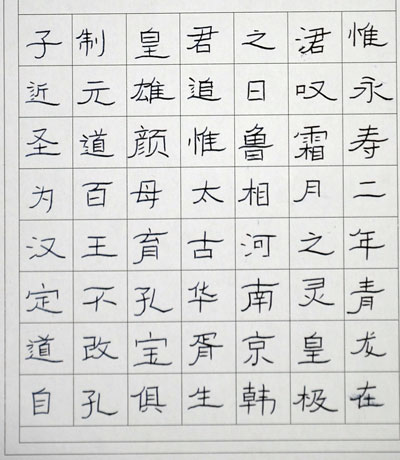 惟永寿二年青龙在
涒叹霜月之灵皇极
之日鲁相河南京韩
君追惟太古华胥生
皇雄颜母育孔宝俱
制元道百王不改孔
子近圣为汉定道自